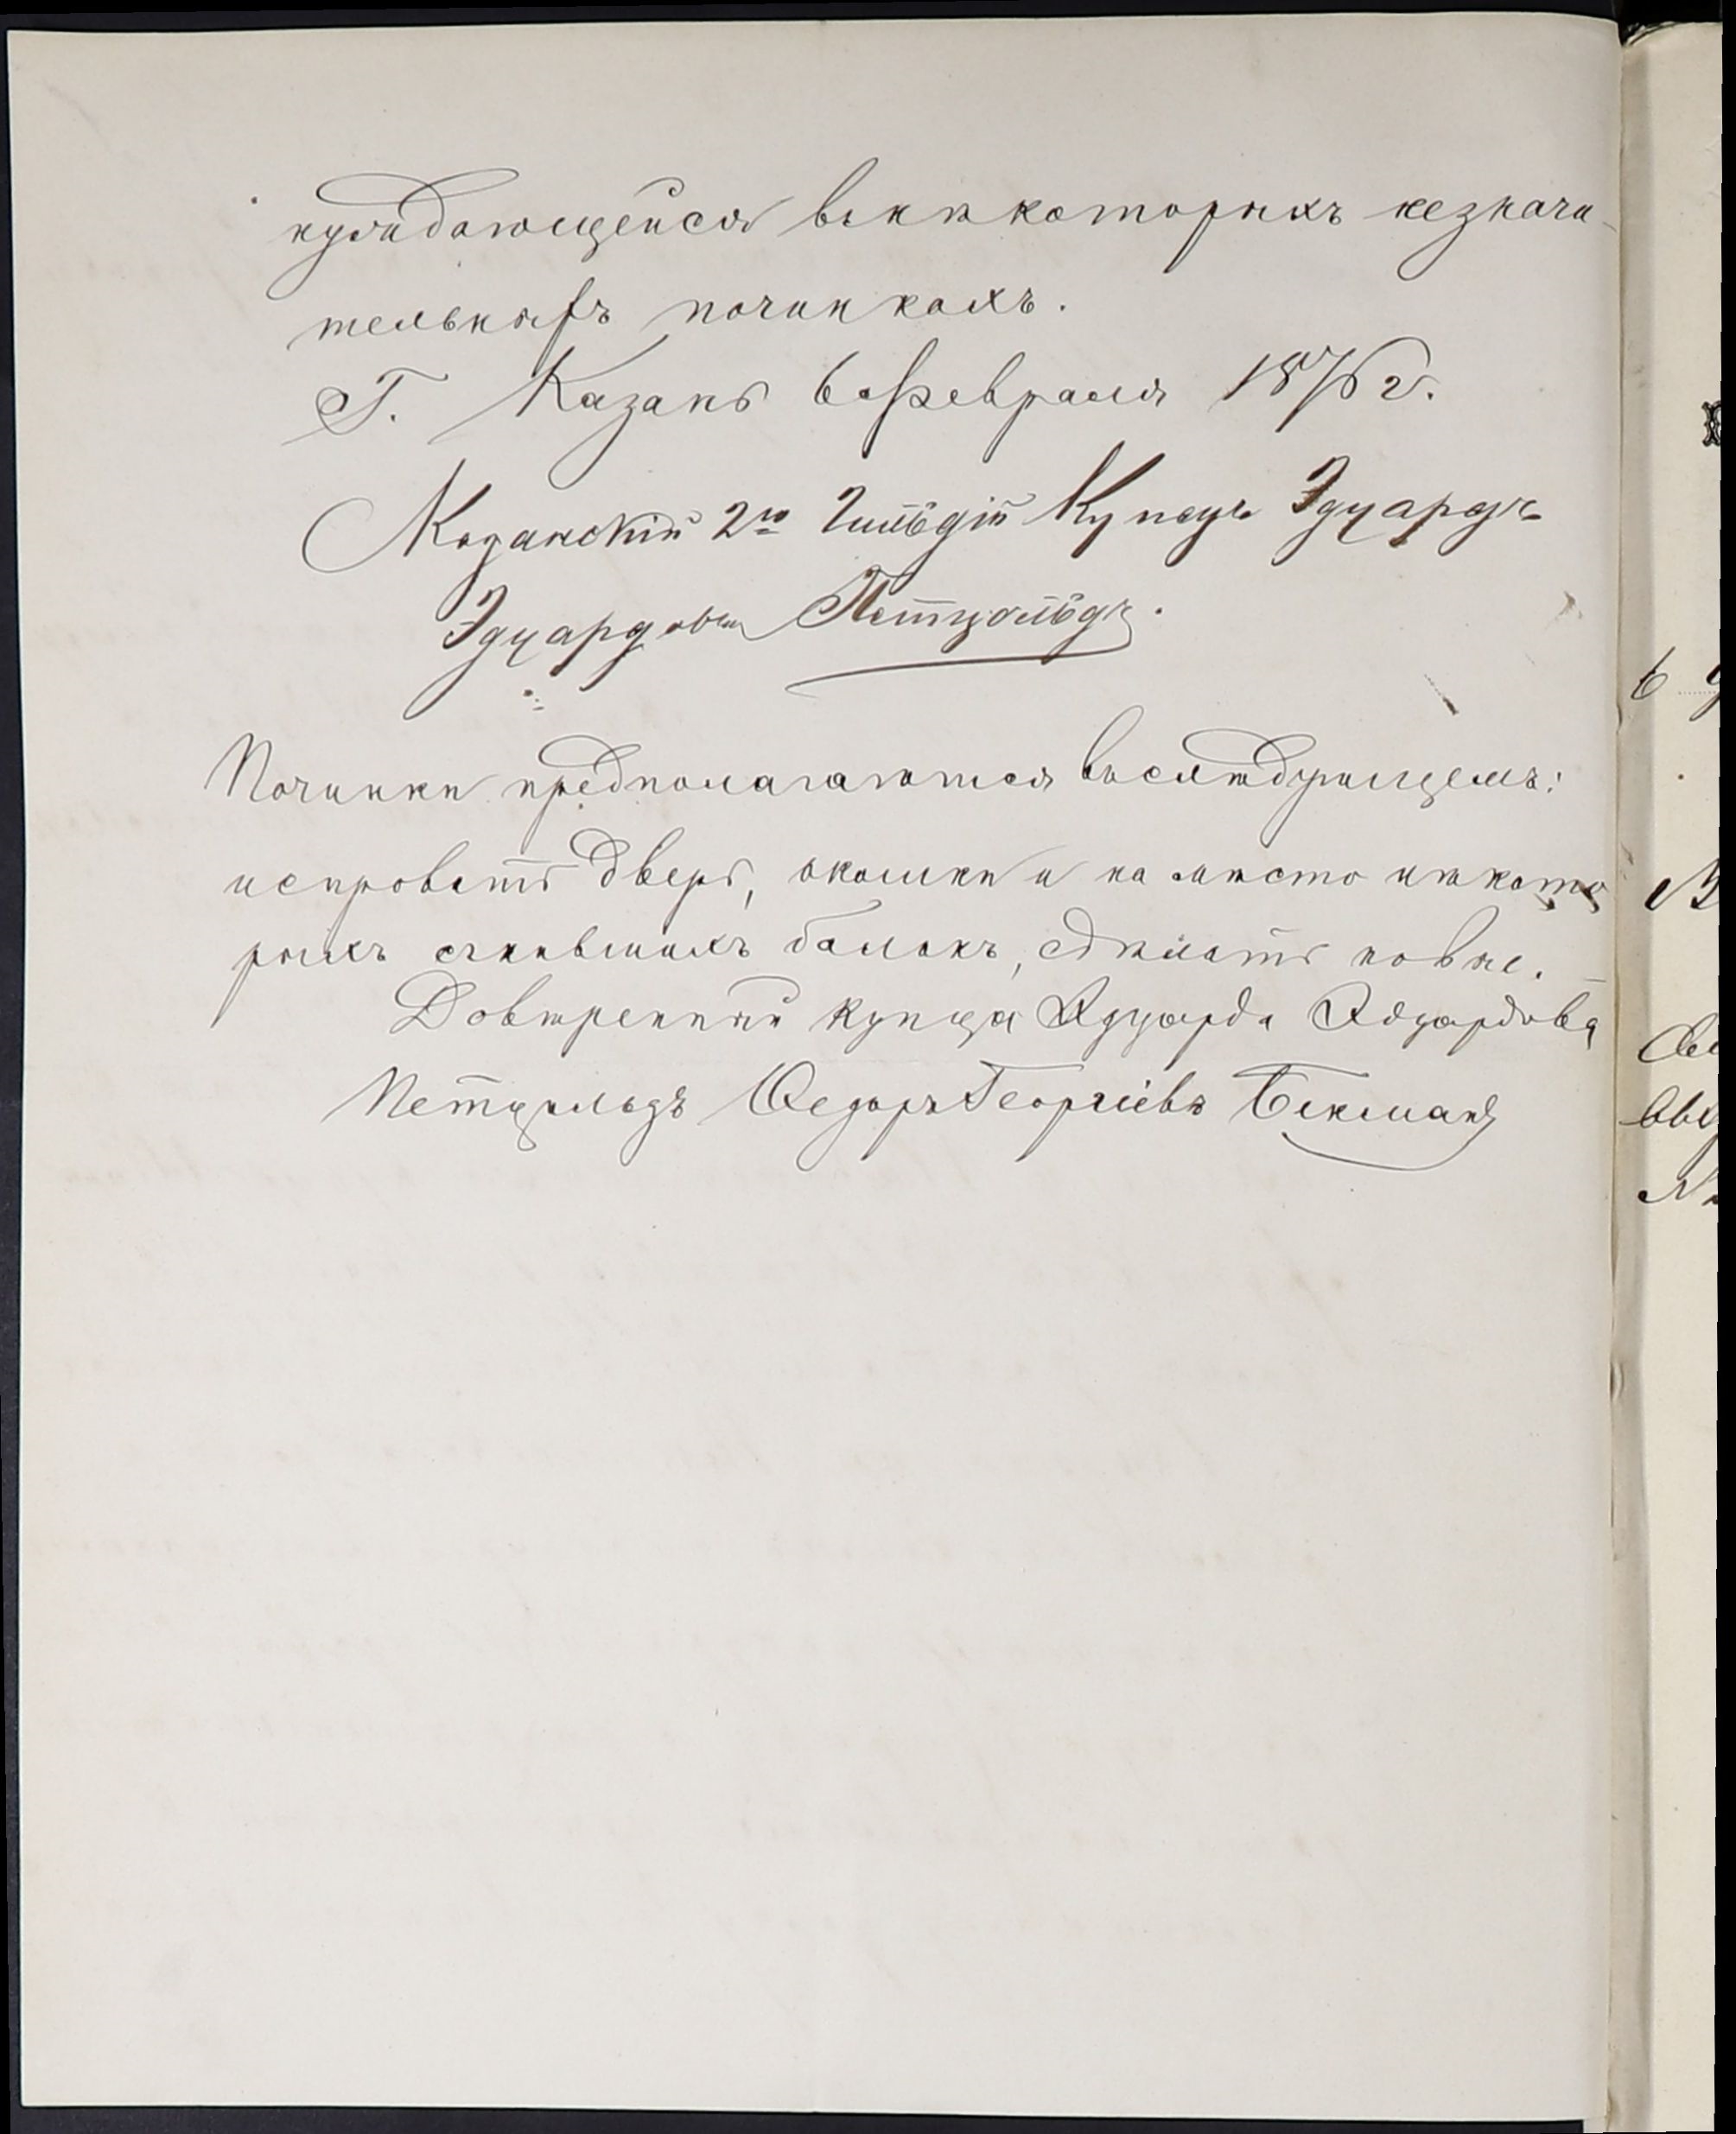 нуждающейся внѣкоторыхъ незначи-
тельныхъ починкахъ.
Г. Казань 6 Февраля 1876 г.
Казанскій 2ой Гильдіи Купецъ Эдуардъ
Эдуардовъ Петцольдъ.
Починки предполагаются вослѣдующемъ:
исправить дверь, окошки и на мѣсто нѣкото
рыхъ сгнившихъ балокъ, сдѣлать новые.
Довѣренный купца Эдуарда Эдуардова
Петцольдъ Федоръ Георгіевъ Бекманъ